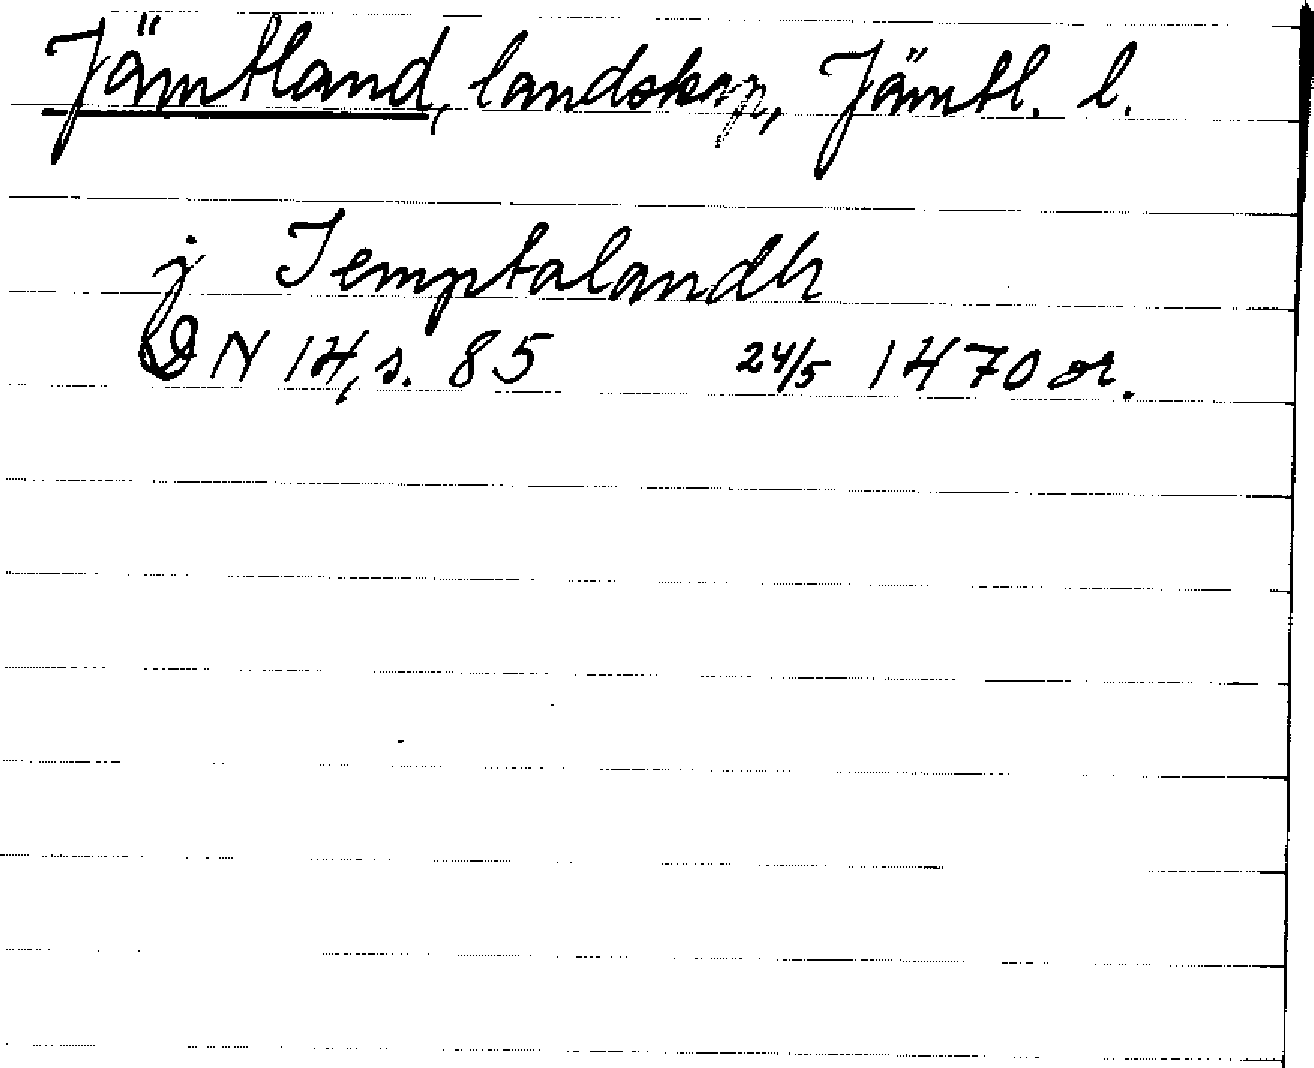 Jämtland, landskap, Jämtl. l.
j Iemptalandh
DN 14, s. 85 24/5 1470 or.